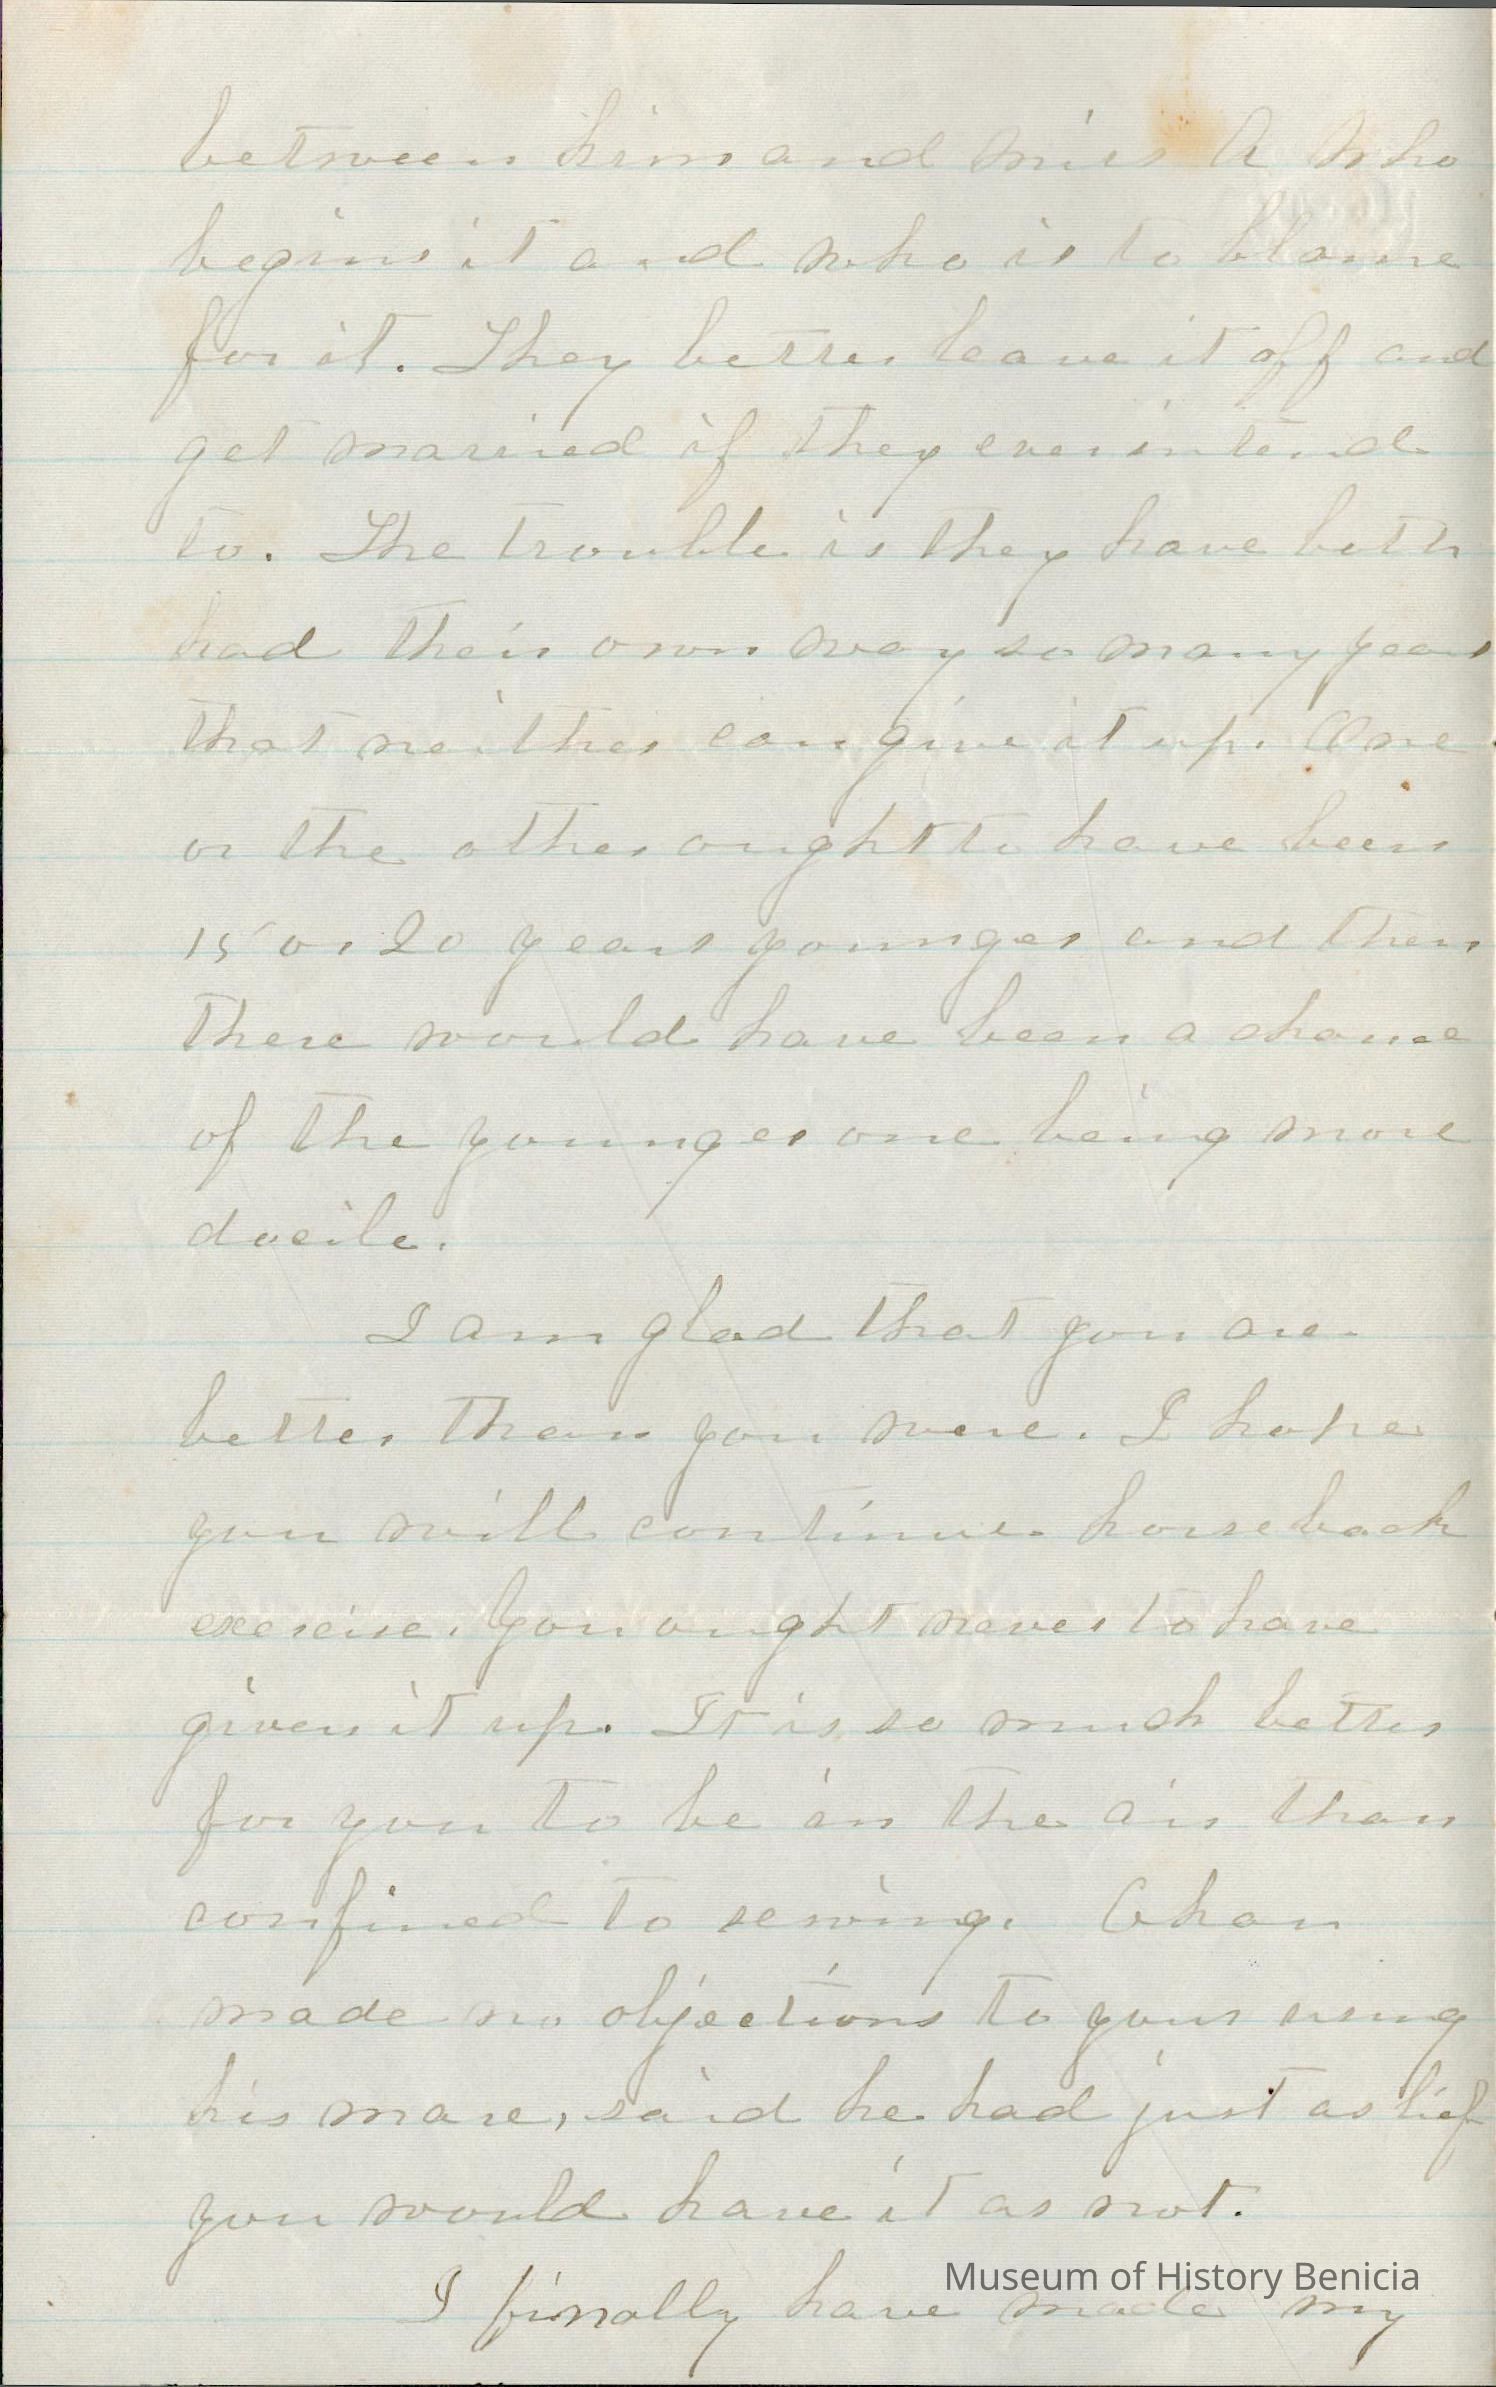 between him and miss A who
begins it and who is to blame
for it. They better leave it off and
get married if they ever intend
to. The trouble is they have both
had their own way so many years
that neither can give it up. One
or the other ought to have been
15 or 20 years younger and then
there would have been a chance
of the younger one being more
docile.
I am glad that you are
better than you were. I hope
you will continue horseback
exercise. You ought never to have
given it up. It is so much better
for you to be in the air than
confined to sewing. Chan
made no objections to your using
his mare, said he had just as lief
you would have it as not.
Museum of History Benicia
I finally have made my